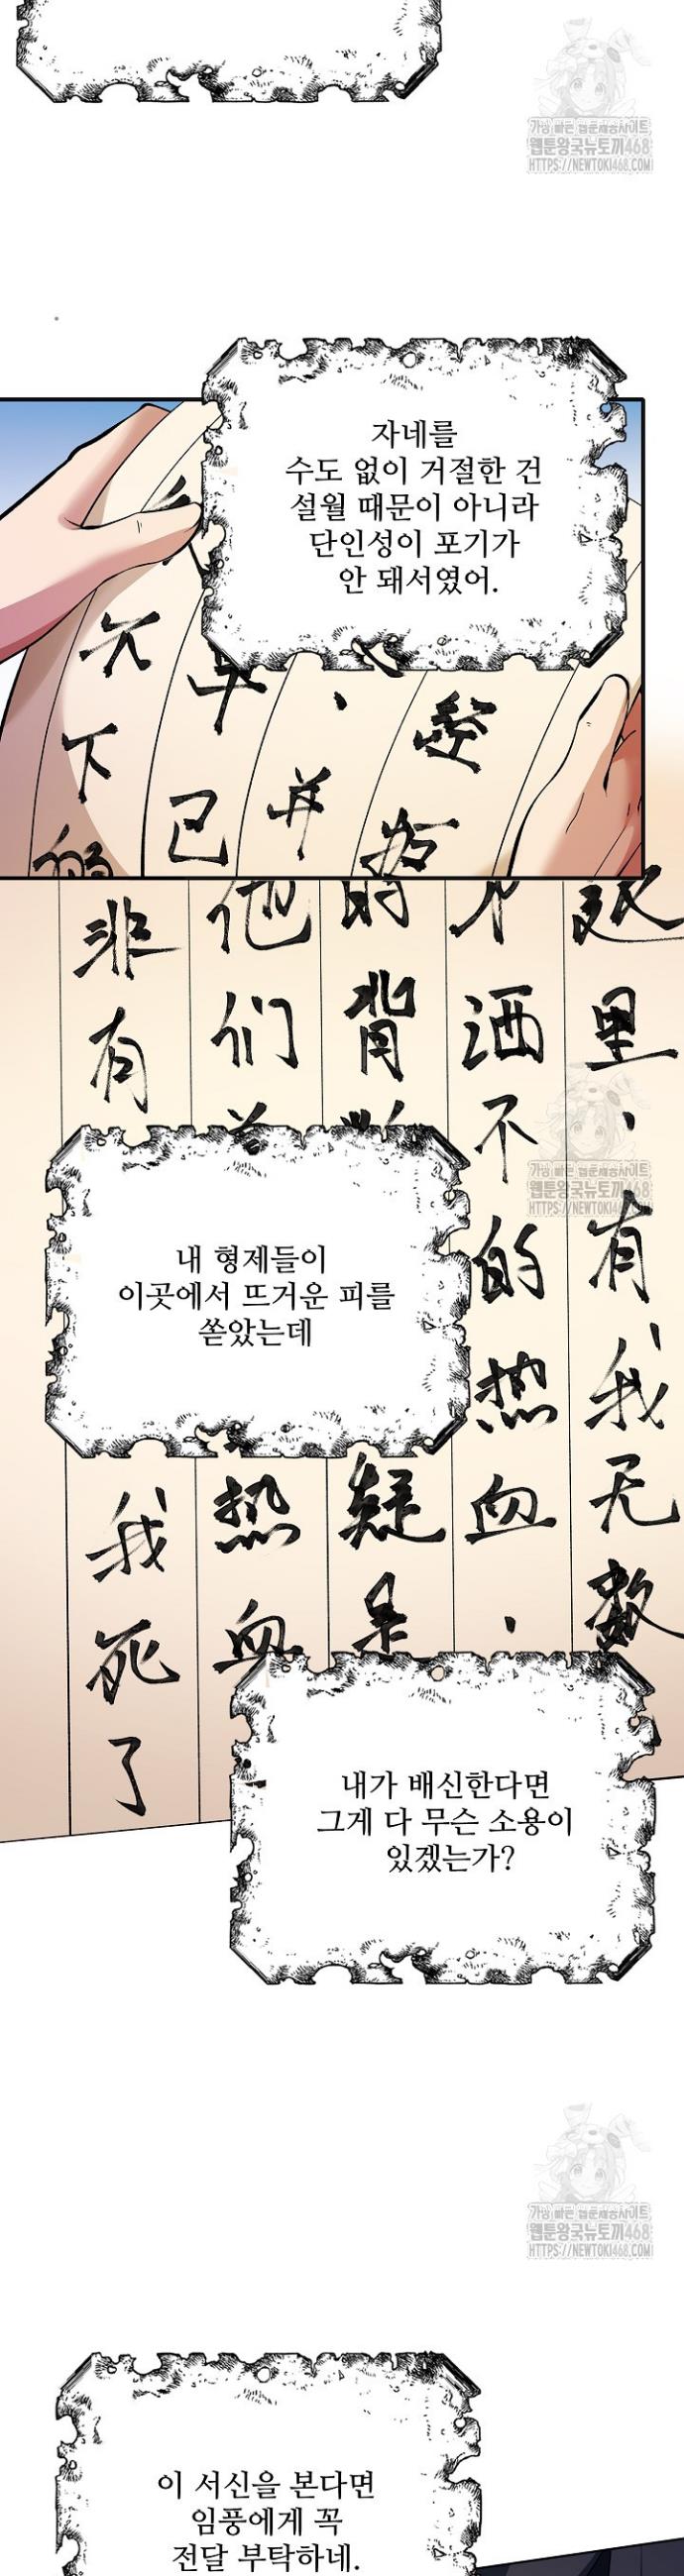 가장 빠른 웹툰제공사이트
웹툰왕국뉴토끼468
HTTPS://NEWTOKI468.COM
자네를
수도 없이 거절한 건
설월 때문이 아니라
단인성이 포기가
안 돼서였어.
这里、有我无数
才洒不的热血、
的背
疑是
他们
热血
非有
我死了
가장 빠른 웹툰제공사이트
웹툰왕국뉴토끼468
HTTPS://NEWTOKI468.COM
내 형제들이
이곳에서 뜨거운 피를
쏟았는데
내가 배신한다면
그게 다 무슨 소용이
있겠는가?
가장 빠른 웹툰제공사이트
웹툰왕국뉴토끼468
HTTPS://NEWTOKI468.COM
이 서신을 본다면
임풍에게 꼭
전달 부탁하네.